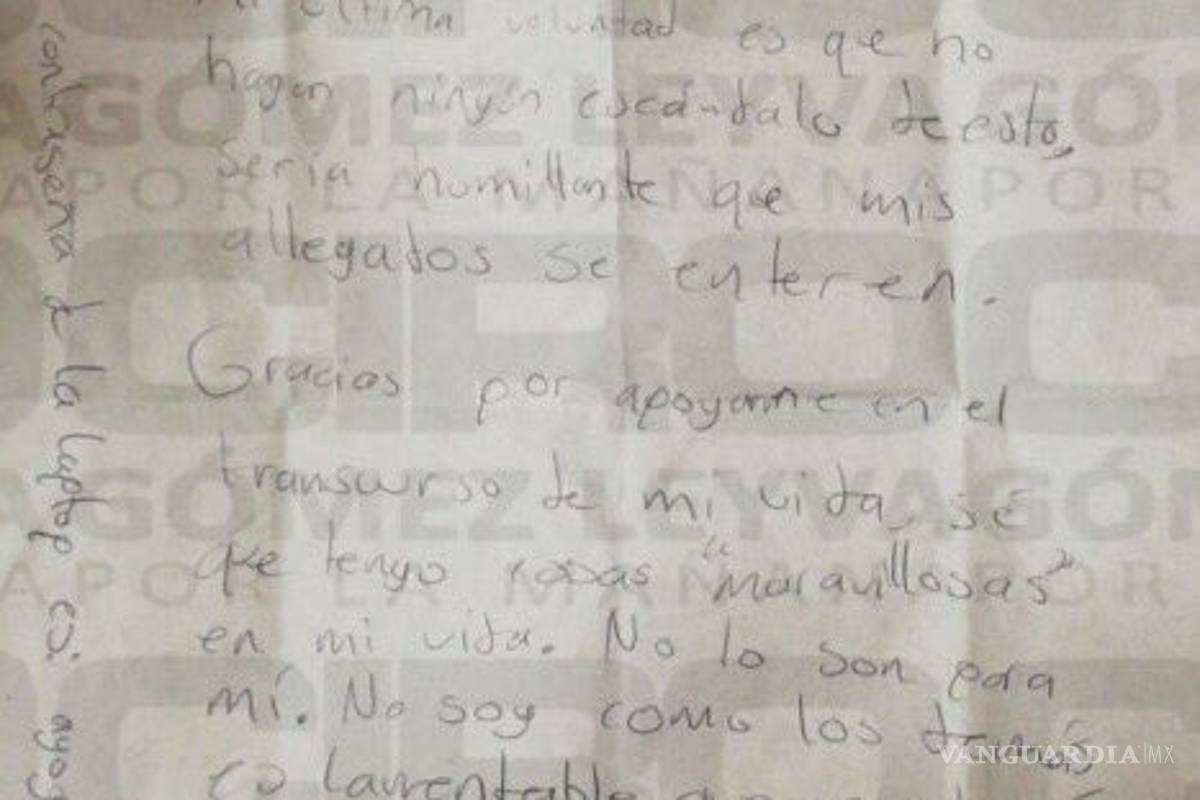 Mi última voluntad es que no
hagan ningún escándalo de esto,
sería humillante que mis
allegados se enteren.
Gracias por apoyarme en el
transcurso de mi vida, sé
que tengo cosas "maravillosas"
en mi vida. No lo son para
mí. No soy como los demás
es lamentable que
contraseña de la laptop es:
GÓMEZ LEYVA
POR LA MAÑANA
GÓMEZ LEYVA
POR LA MAÑANA
VANGUARDIA|MX